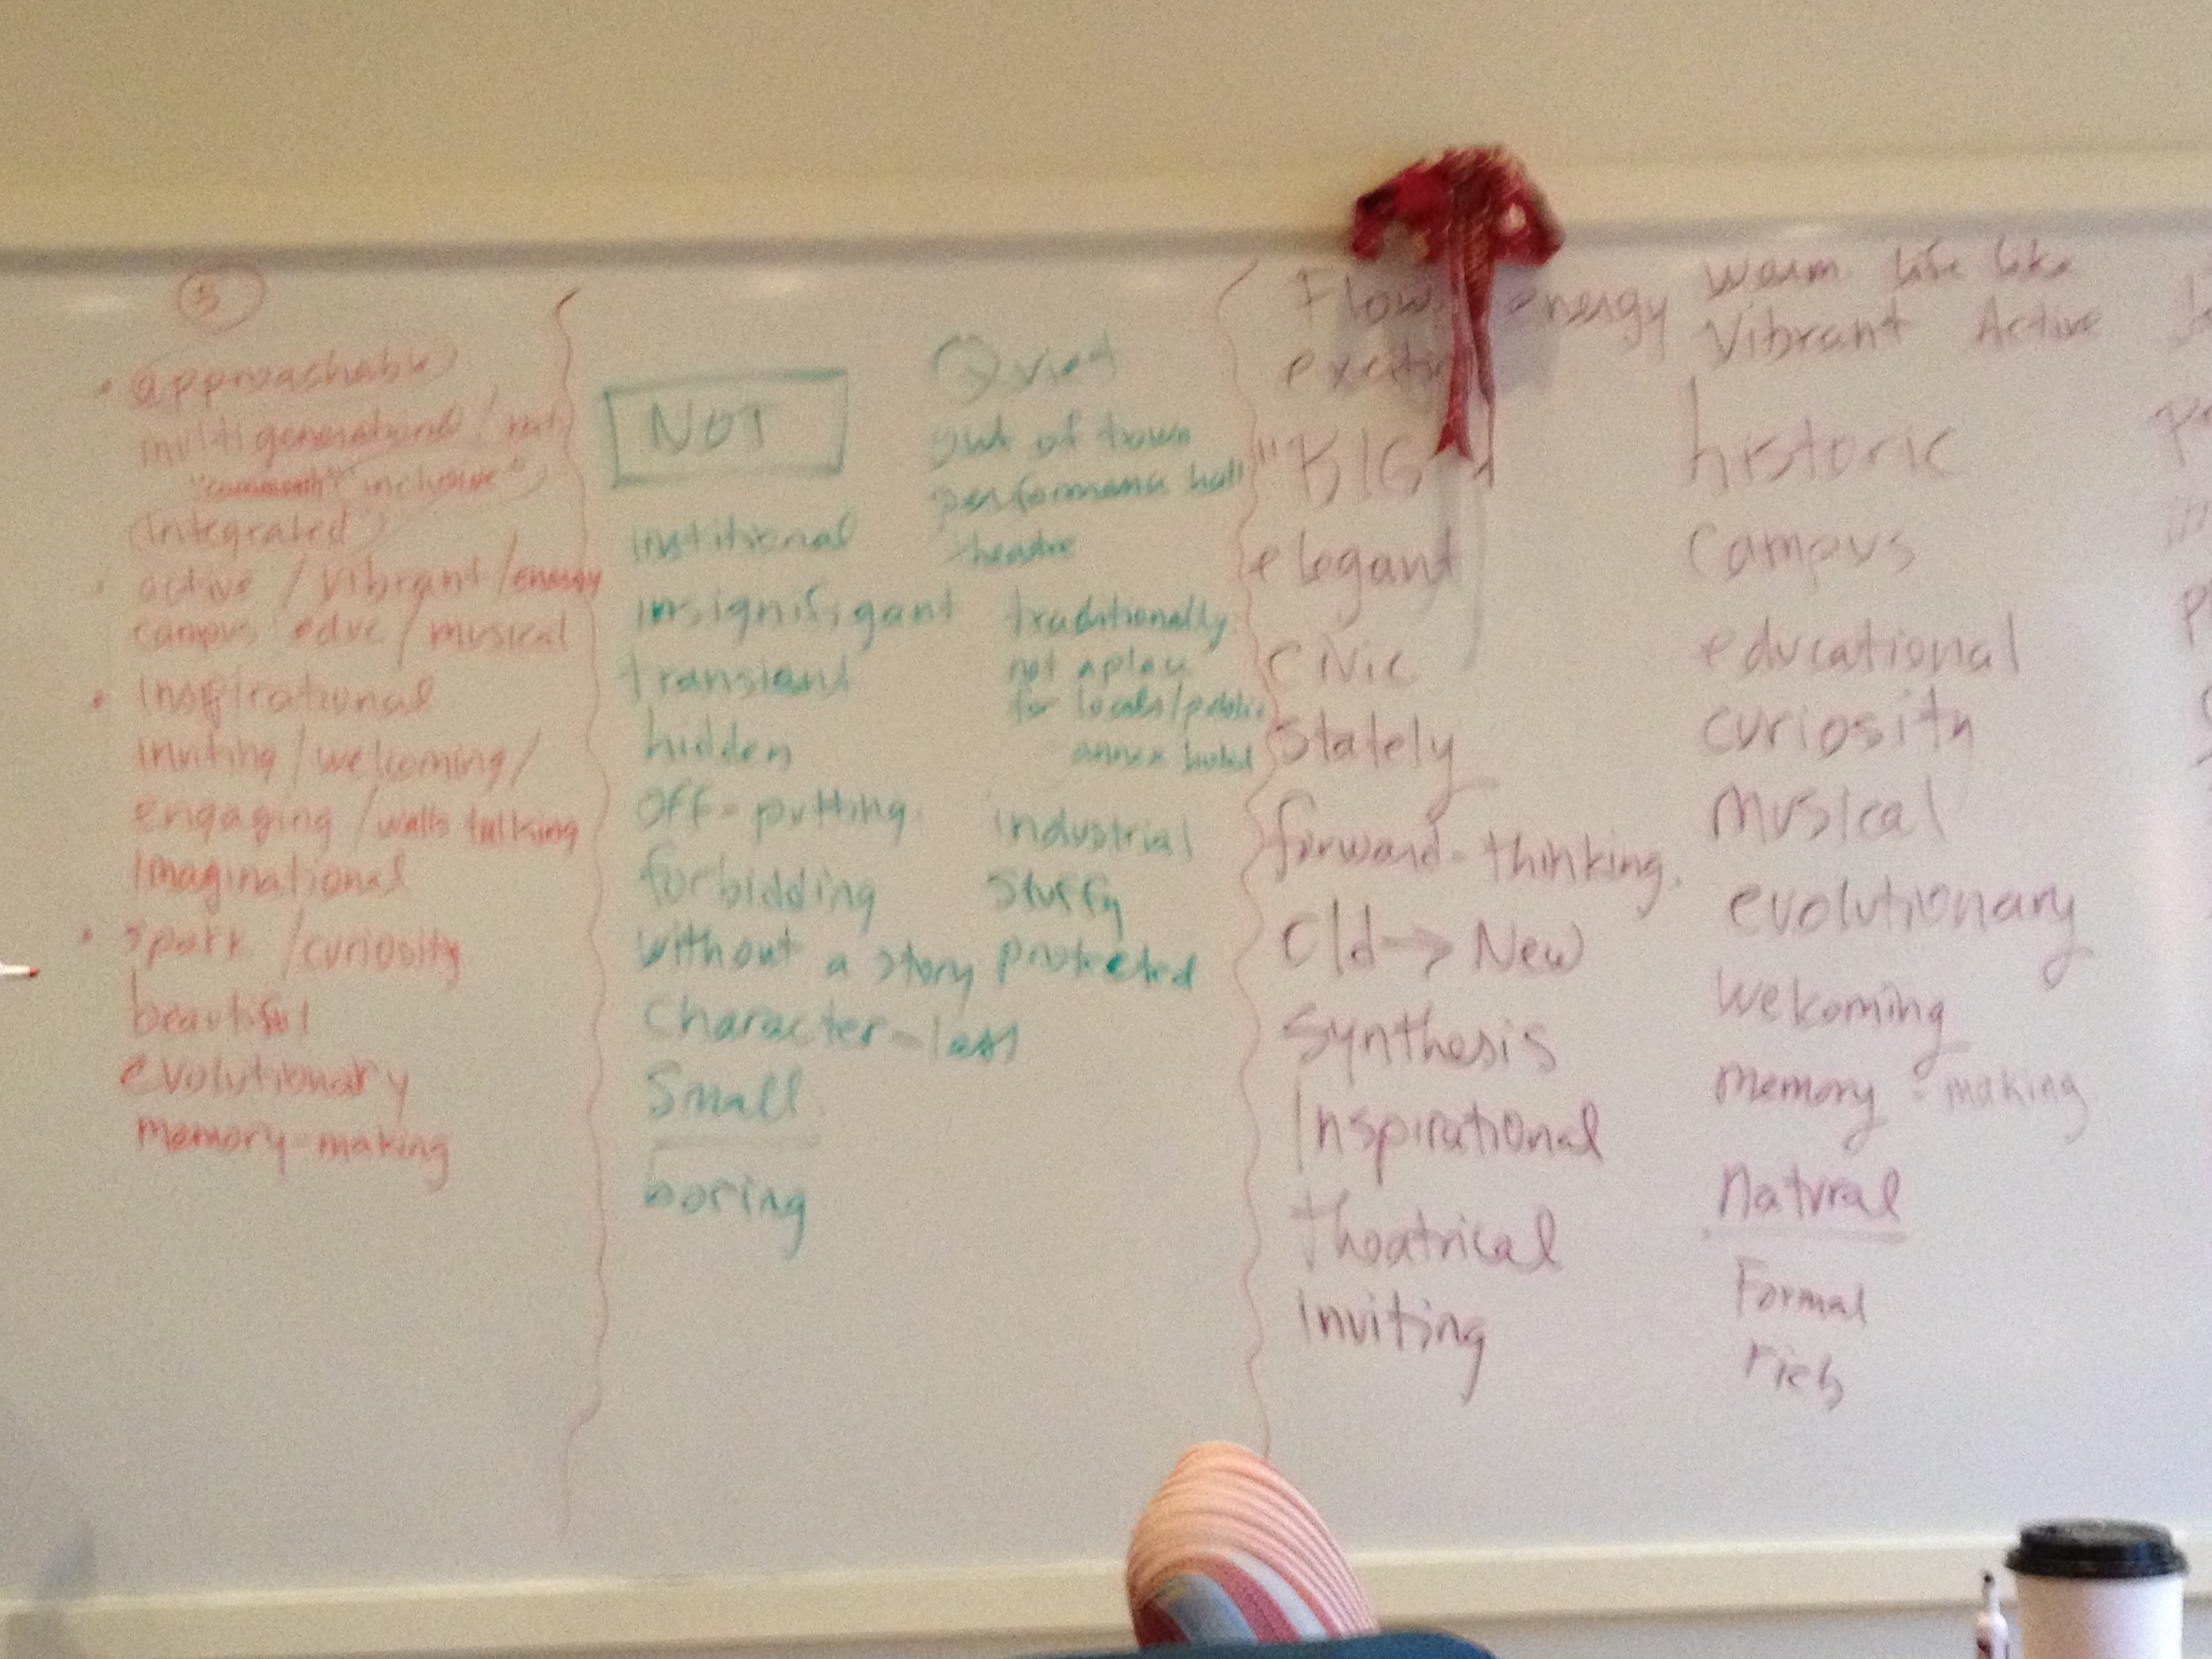 5
approachable
multigenerational /
inclusive"
(Integrated)
active / vibrant / energy
campus educ / musical
Inspirational
inviting / welcoming /
engaging / walls talking
Imaginational
spark / curiosity
beautiful
evolutionary
memory-making
NOT
institional
insignifigant
transient
hidden
off-putting
forbidding
without a story
character-less
Small
boring
Quiet
out of town
performance hall
theatre
traditionally
not a place
for locals/public
annex
industrial
stuffy
protected
Flow energy
"BIG"
elegant
civic
Stately
forward-thinking
Old → New
Synthesis
Inspirational
theatrical
Inviting
warm life like
Vibrant Active
historic
campus
educational
curiosity
musical
evolutionary
welcoming
memory-making
natural
Formal
rich